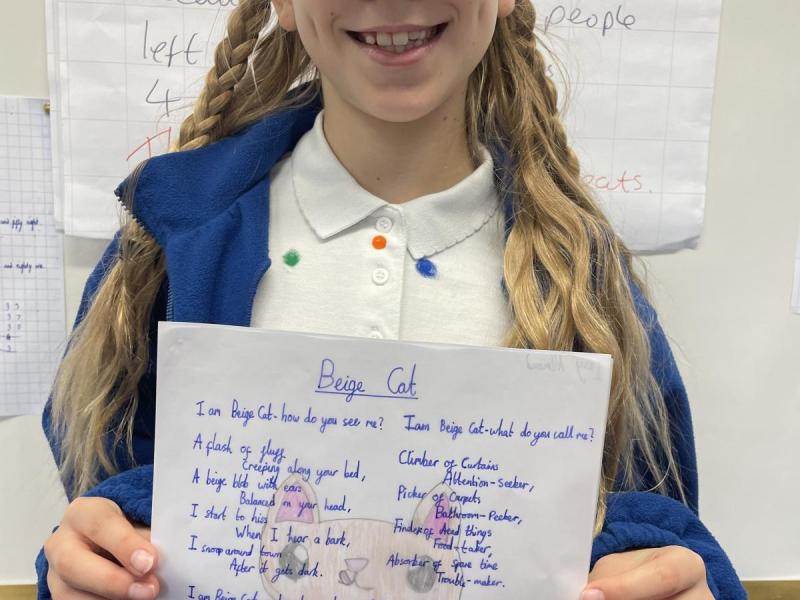 left
4
people
eats.
and fifty eight
and eighty one
Beige Cat
I am Beige Cat - how do you see me?
A flash of fluff
Creeping along your bed,
A beige blob with ears
Balanced on your head,
I start to hiss
When I hear a bark,
I snoop around town
After it gets dark.
I am Beige Cat -
I am Beige Cat - what do you call me?
Climber of Curtains
Attention-Seeker,
Picker of Carpets
Bathroom-Peeker,
Finder of dead things
Food-taker,
Absorber of spare time
Trouble-maker.